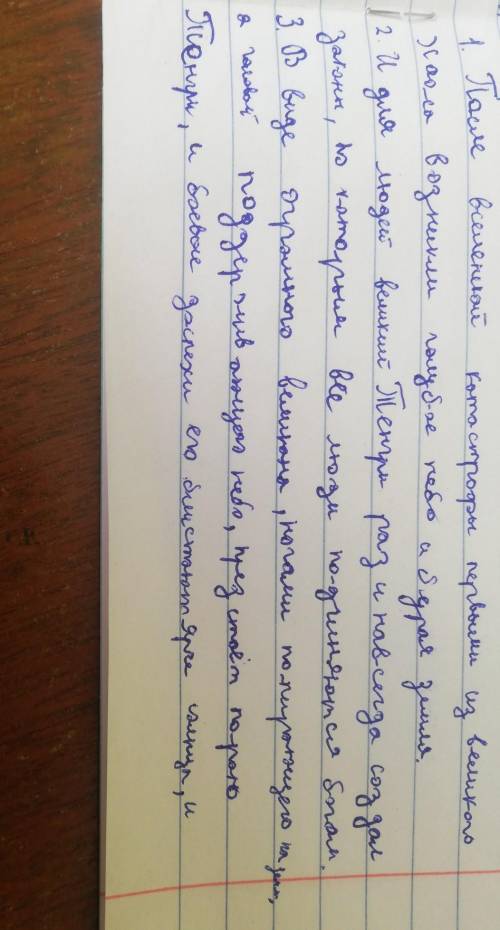 1. После вселенной катастрофы первыми из великого
Хаоса возникли голуб-ое небо и бурая земля.
2. И для людей великий Тенгри раз и навсегда создал
законы, по которым все люди по-дчиняются богам.
3. В виде огромного великана, ногами по-пирающего на земл,
а головой поддерживающего небо, предстаёт порою
Тенгри, и боевые доспехи его блистают ярче солнца, и